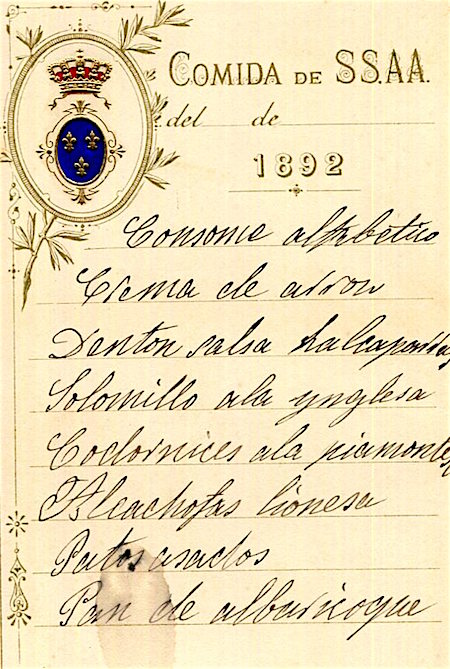 COMIDA DE SS.AA.
del de
1892
Consome alfabetico
Crema de arron
Denton salsa halcaparras
Solomillo ala ynglesa
Codornices ala piamontesa
Alcachofas lionesa
Patos asados
Pan de albaricoque